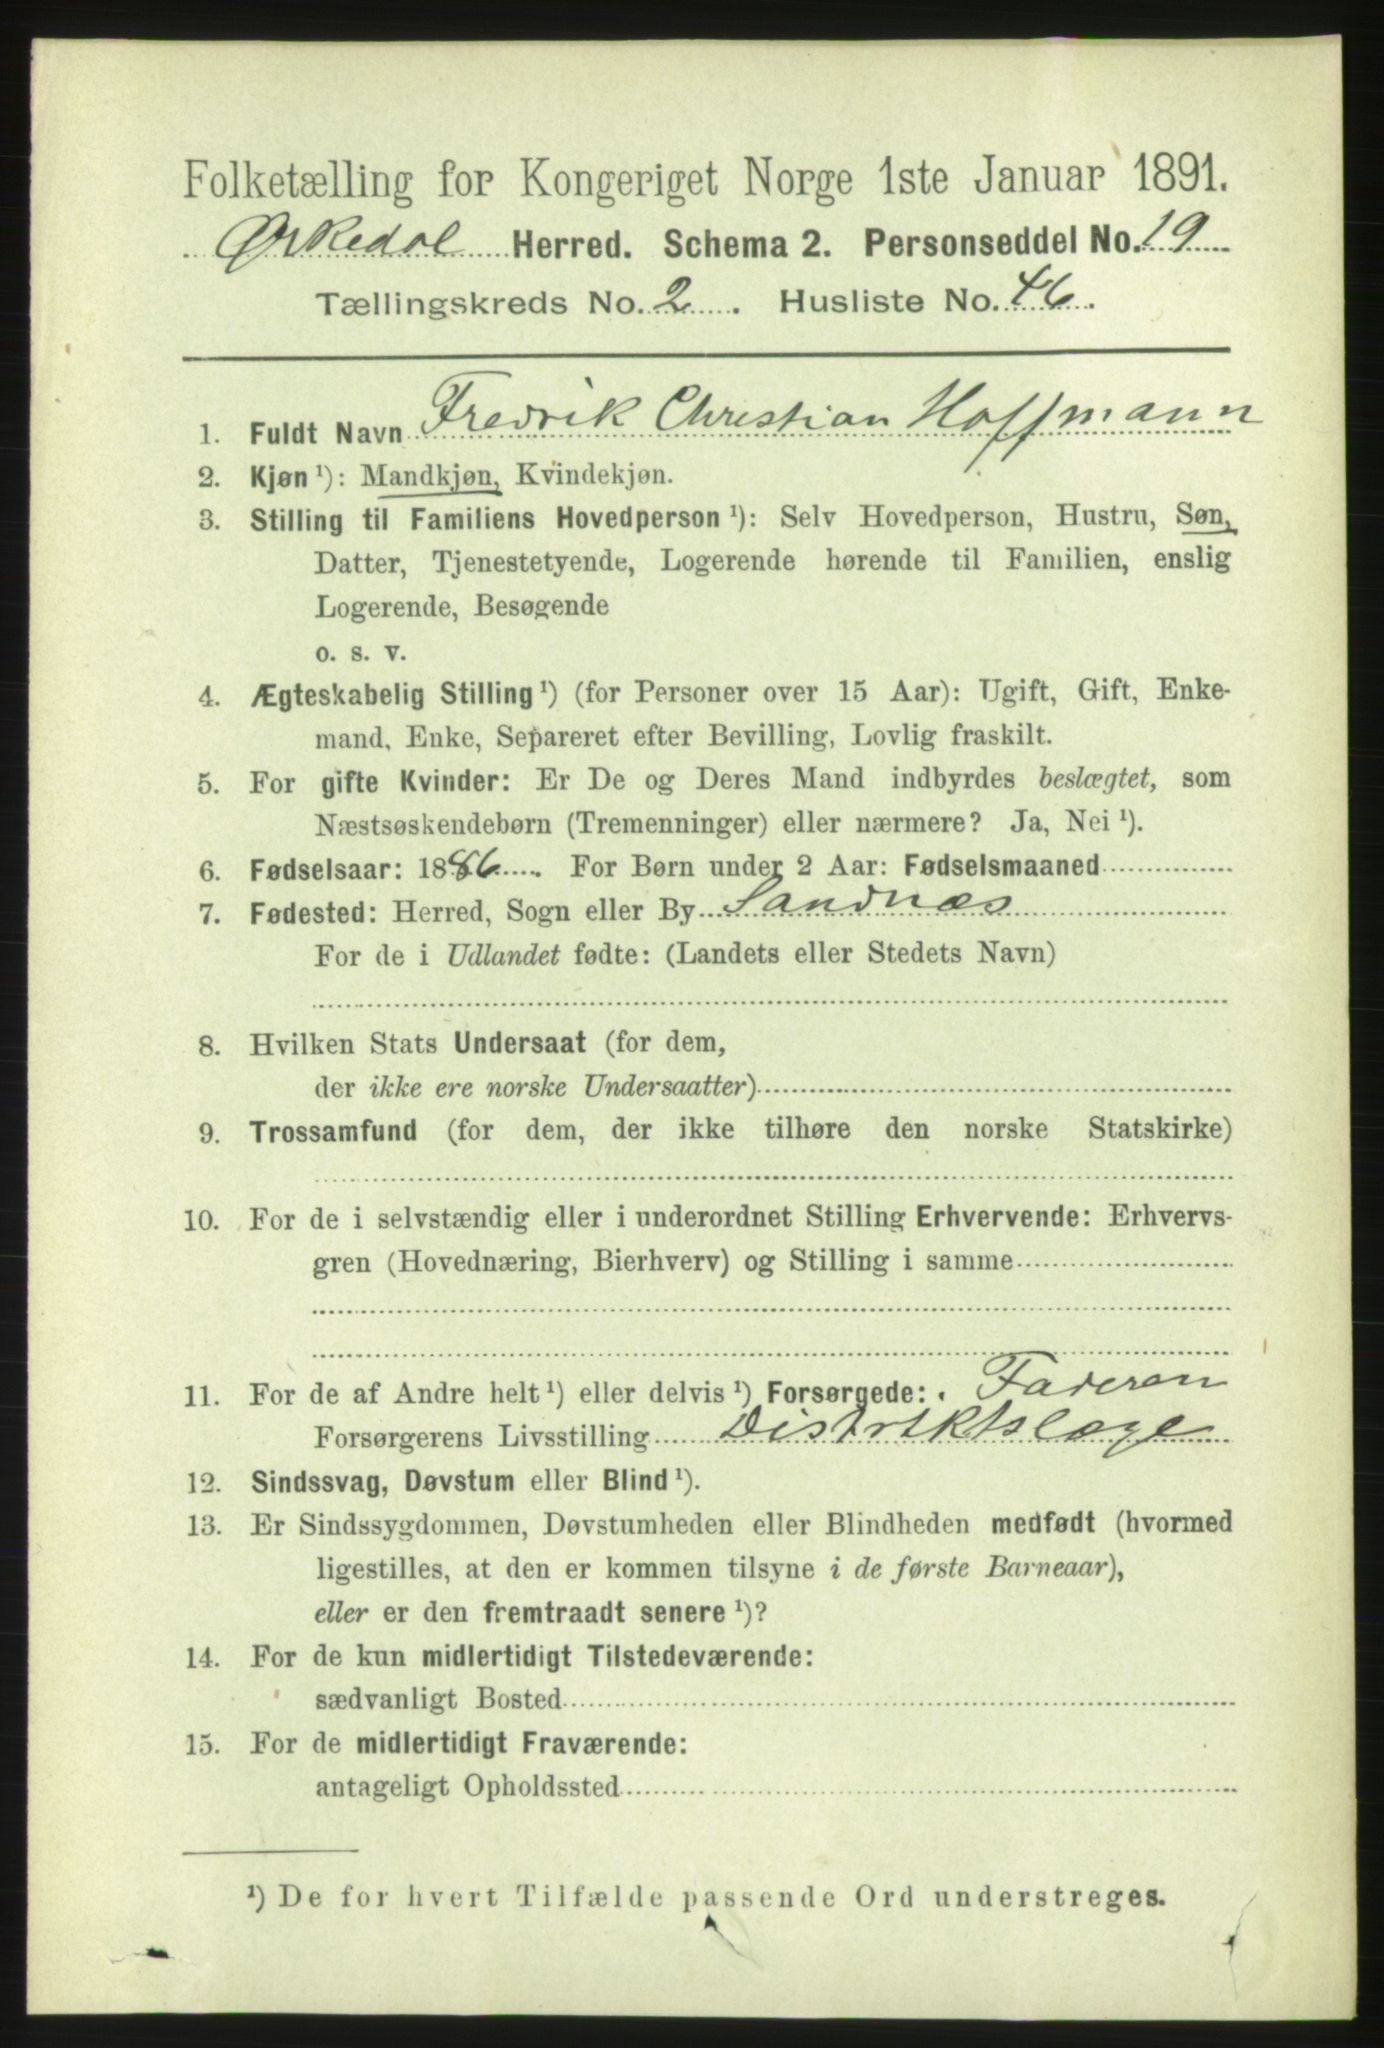 Folketælling for Kongeriget Norge 1ste Januar 1891.
Ørkedal Herred. Schema 2. Personseddel No. 19
Tællingskreds No. 2. Husliste No. 46.
1. Fuldt Navn Fredrik Christian Hoffmann
2. Kjøn ¹): Mandkjøn, Kvindekjøn.
3. Stilling til Familiens Hovedperson ¹): Selv Hovedperson, Hustru, Søn,
Datter, Tjenestetyende, Logerende hørende til Familien, enslig
Logerende, Besøgende
o. s. v.
4. Ægteskabelig Stilling ¹) (for Personer over 15 Aar): Ugift, Gift, Enke-
mand, Enke, Separeret efter Bevilling, Lovlig fraskilt.
5. For gifte Kvinder: Er De og Deres Mand indbyrdes beslægtet, som
Næstsøskendebørn (Tremenninger) eller nærmere? Ja, Nei ¹).
6. Fødselsaar: 1886. For Børn under 2 Aar: Fødselsmaaned
7. Fødested: Herred, Sogn eller By Sandnæs
For de i Udlandet fødte: (Landets eller Stedets Navn)
8. Hvilken Stats Undersaat (for dem,
der ikke ere norske Undersaatter)
9. Trossamfund (for dem, der ikke tilhøre den norske Statskirke)
10. For de i selvstændig eller i underordnet Stilling Erhvervende: Erhvervs-
gren (Hovednæring, Bierhverv) og Stilling i samme
11. For de af Andre helt ¹) eller delvis ¹) Forsørgede: Faderen
Forsørgerens Livsstilling Distriktslæge
12. Sindssvag, Døvstum eller Blind ¹).
13. Er Sindssygdommen, Døvstumheden eller Blindheden medfødt (hvormed
ligestilles, at den er kommen tilsyne i de første Barneaar),
eller er den fremtraadt senere ¹)?
14. For de kun midlertidigt Tilstedeværende:
sædvanligt Bosted
15. For de midlertidigt Fraværende:
antageligt Opholdssted
¹) De for hvert Tilfælde passende Ord understreges.